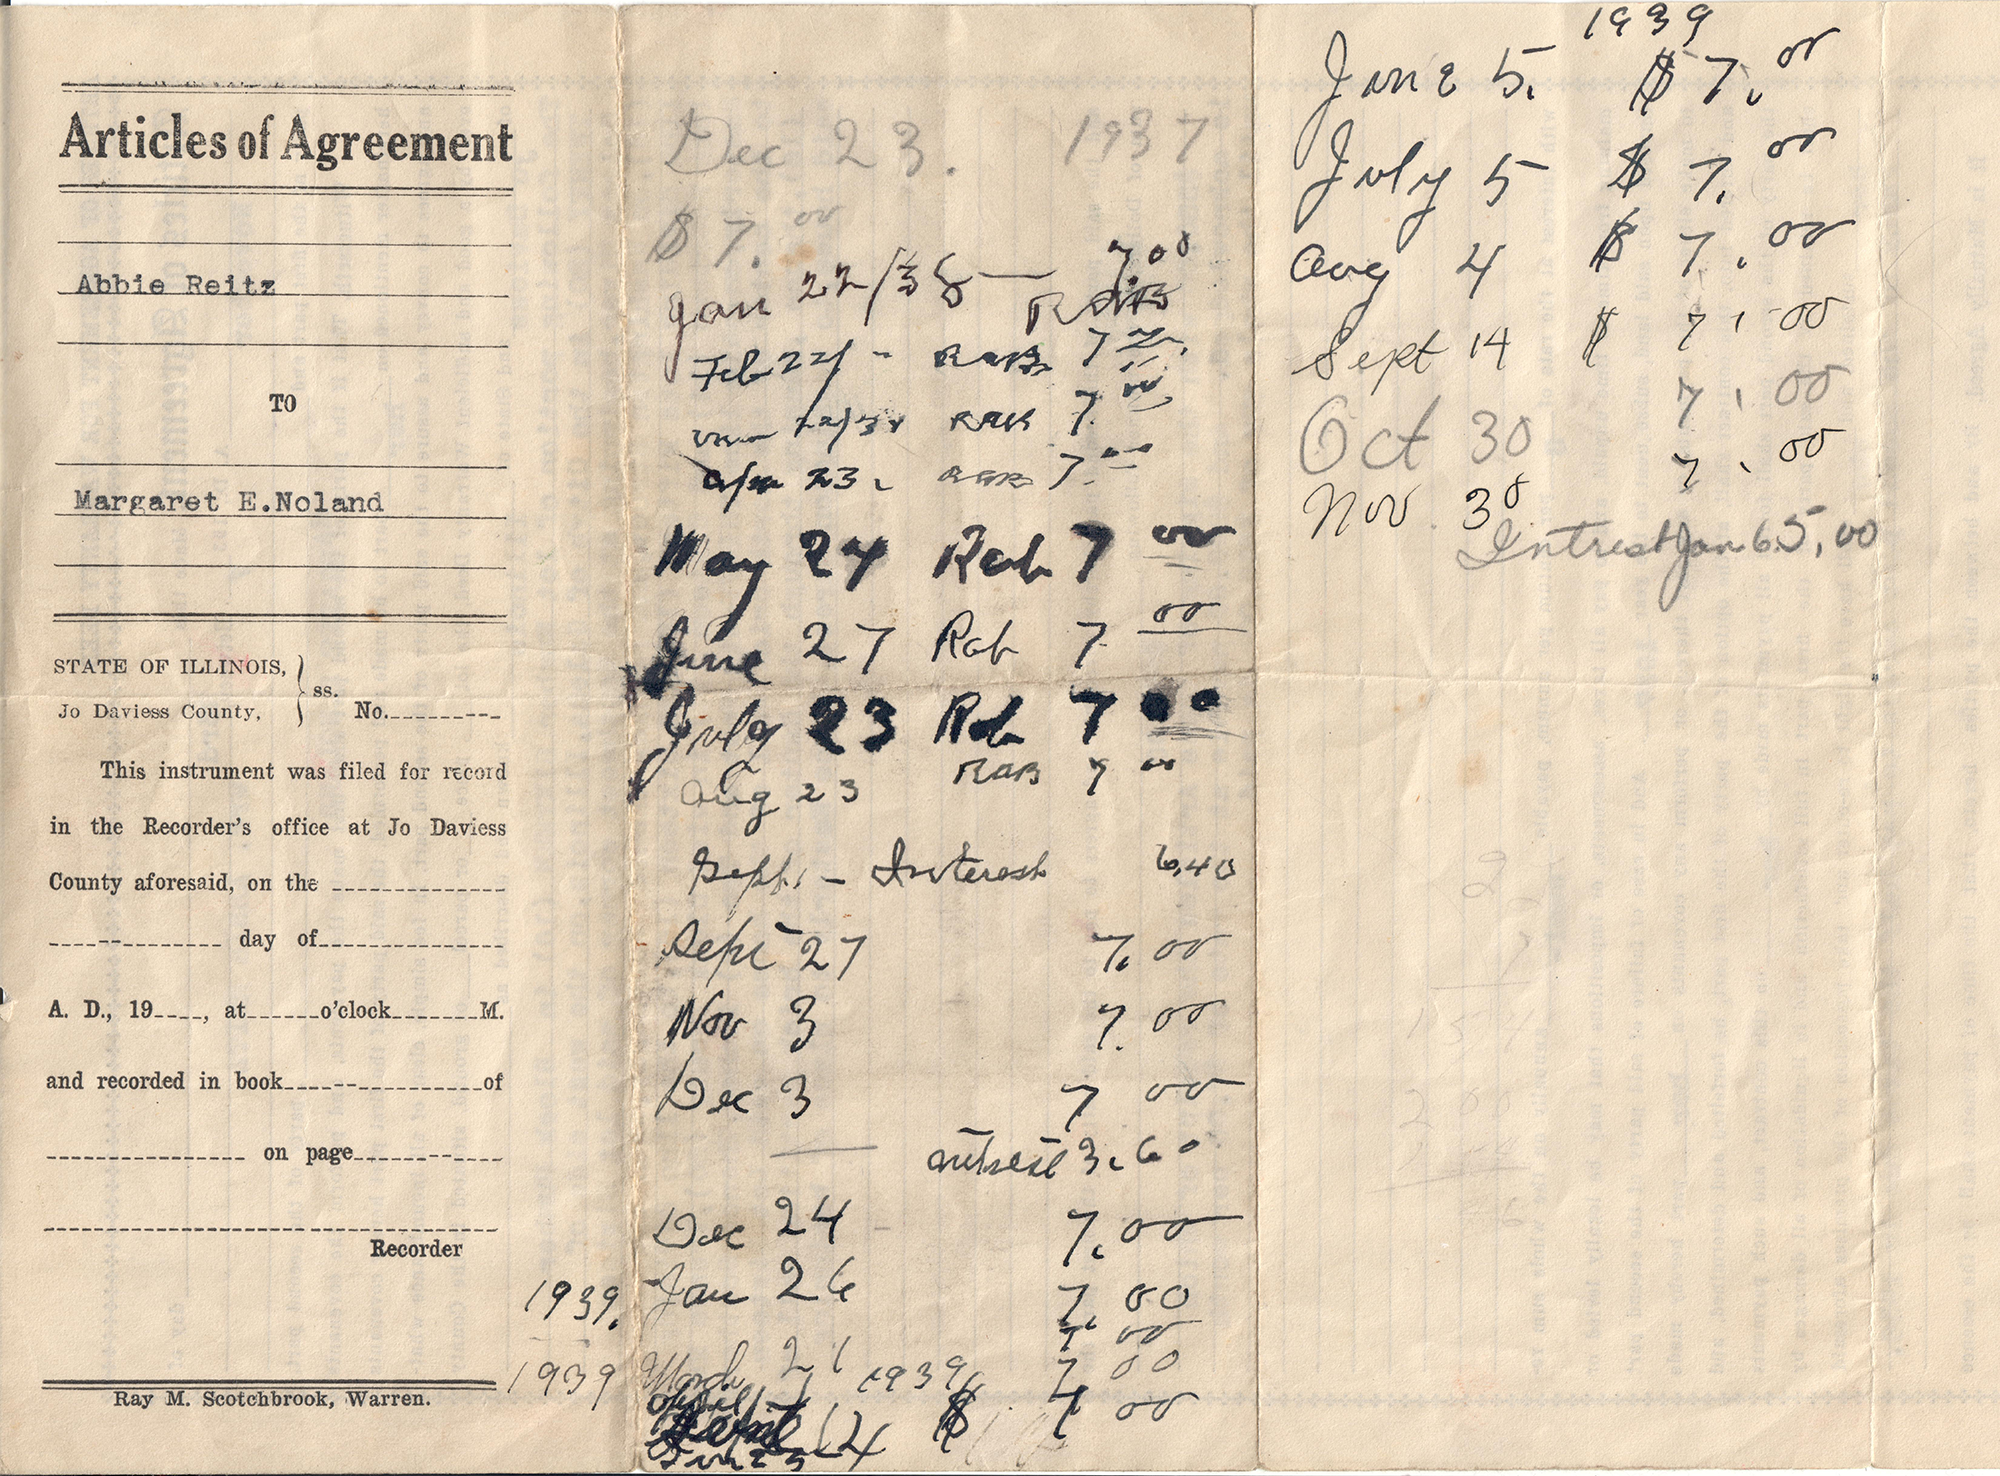 Articles of Agreement
Abbie Reitz
TO
Margaret E.Noland
STATE OF ILLINOIS,
Jo Daviess County,
ss.
No.
This instrument was filed for record
in the Recorder's office at Jo Daviess
County aforesaid, on the
day of
A. D., 19____, at______o'clock______M.
and recorded in book____________of
on page
Recorder
Ray M. Scotchbrook, Warren.
Dec 23. 1937
$7.00
Jan 22/38 — 7.00
RAB
Feb 22/ - RAB 7
RAB 7.00
23. RAB 7.00
May 24 Rab 7 00
June 27 Rab 7 00
July 23 Rob 7 00
Aug 23 RAB 7 00
Sept. - Interest 6.40
Sept 27 7.00
Nov 3 7.00
Dec 3 7 00
intrest 3.60
Dec 24 7.00
1939. Jan 26 7.00
7 00
1939 March 21 1939 7 00
April 14 $ 7 00
1939
June 5. $7.00
July 5 $7.00
Aug 4 $7.00
Sept 14 $7.00
Oct 30 7.00
Nov. 30 7.00
Intrest Jan 6 5,00